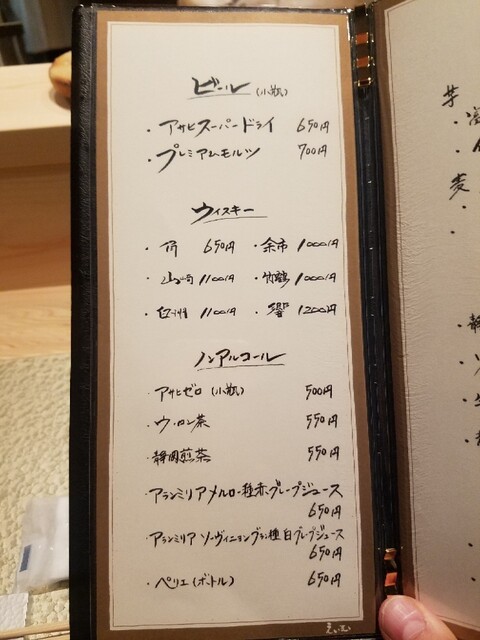 ビール（小瓶）
・アサヒスーパードライ 650円
・プレミアムモルツ 700円
ウィスキー
650円 ・余市 1000円
・山崎 1100円 ・竹鶴 1000円
・白州 1100円 ・響 1200円
ノンアルコール
・アサヒゼロ（小瓶） 500円
・ウーロン茶 550円
・静岡煎茶 550円
・アランミリアメルロー種赤グレープジュース
650円
・アランミリアソーヴィニョンブラン種白グレープジュース
650円
・ペリエ（ボトル） 650円
芋
麦